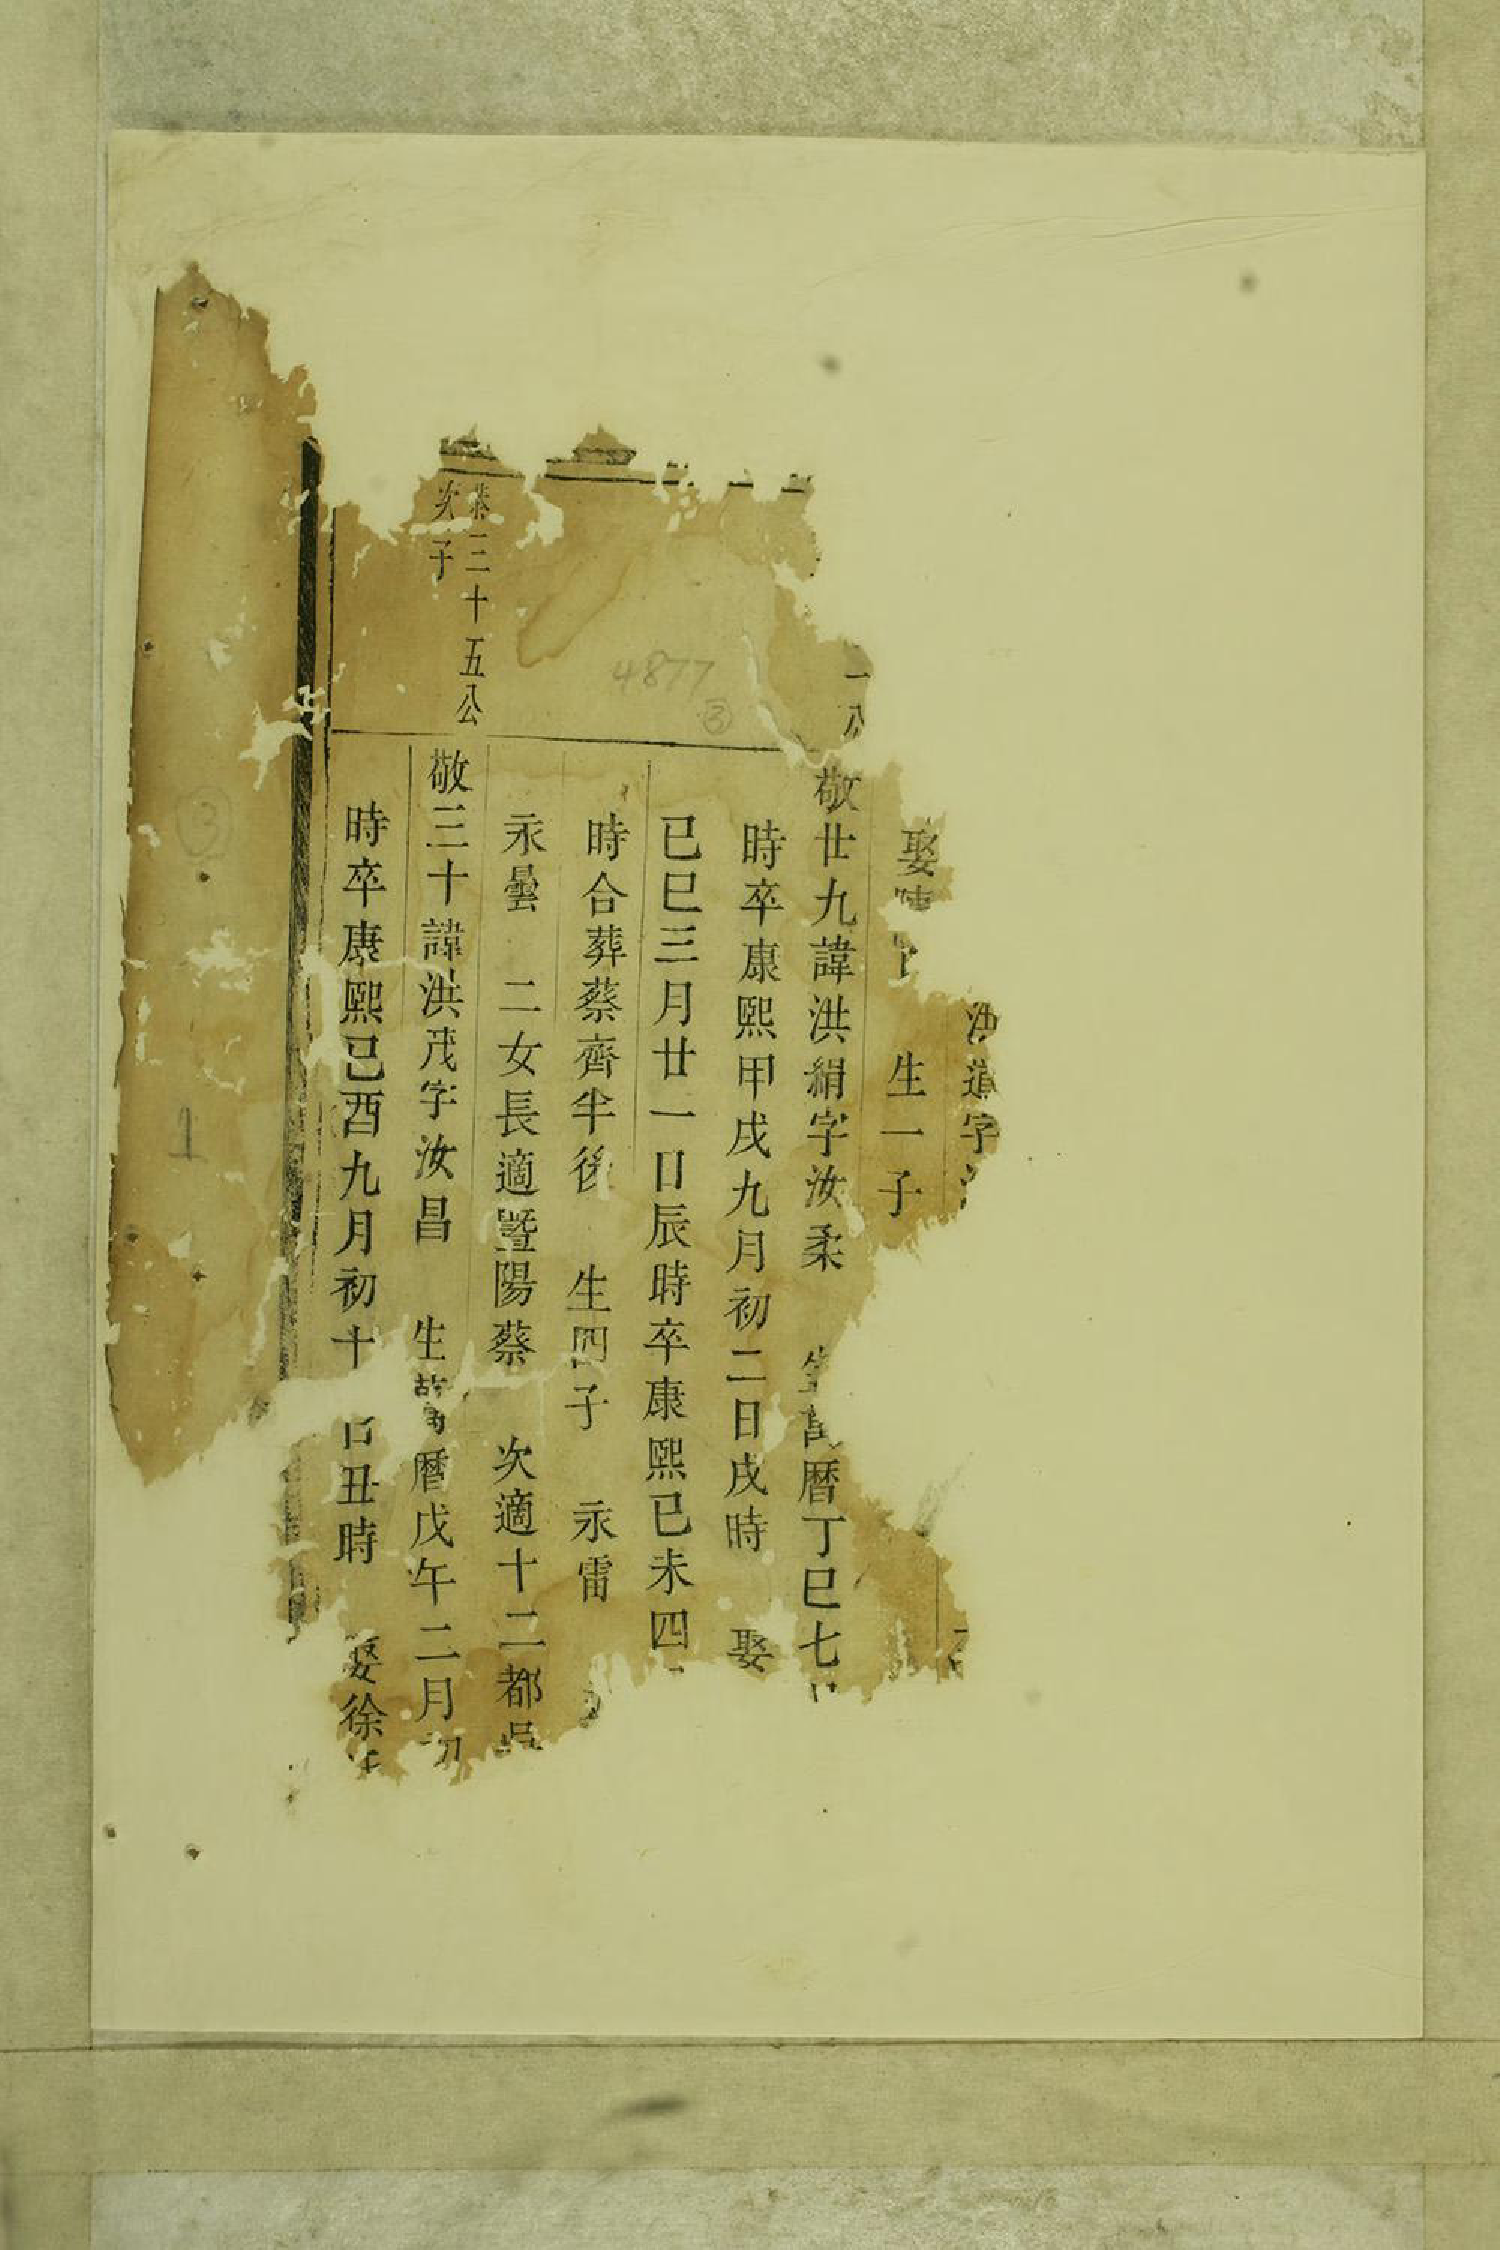 道字
娶
生一子
敬廿九諱洪絹字汝柔 生萬曆丁巳七
時卒康熙甲戌九月初二日戌時 娶
已巳三月廿一日辰時卒康熙已未四
時合葬蔡齊半後 生四子 永雷
永曇 二女長適暨陽蔡 次適十二都
恭三十五公
次子
敬三十諱洪茂字汝昌 生萬曆戊午二月初
時卒康熙已酉九月初十日丑時 娶徐
4877
③
③
1